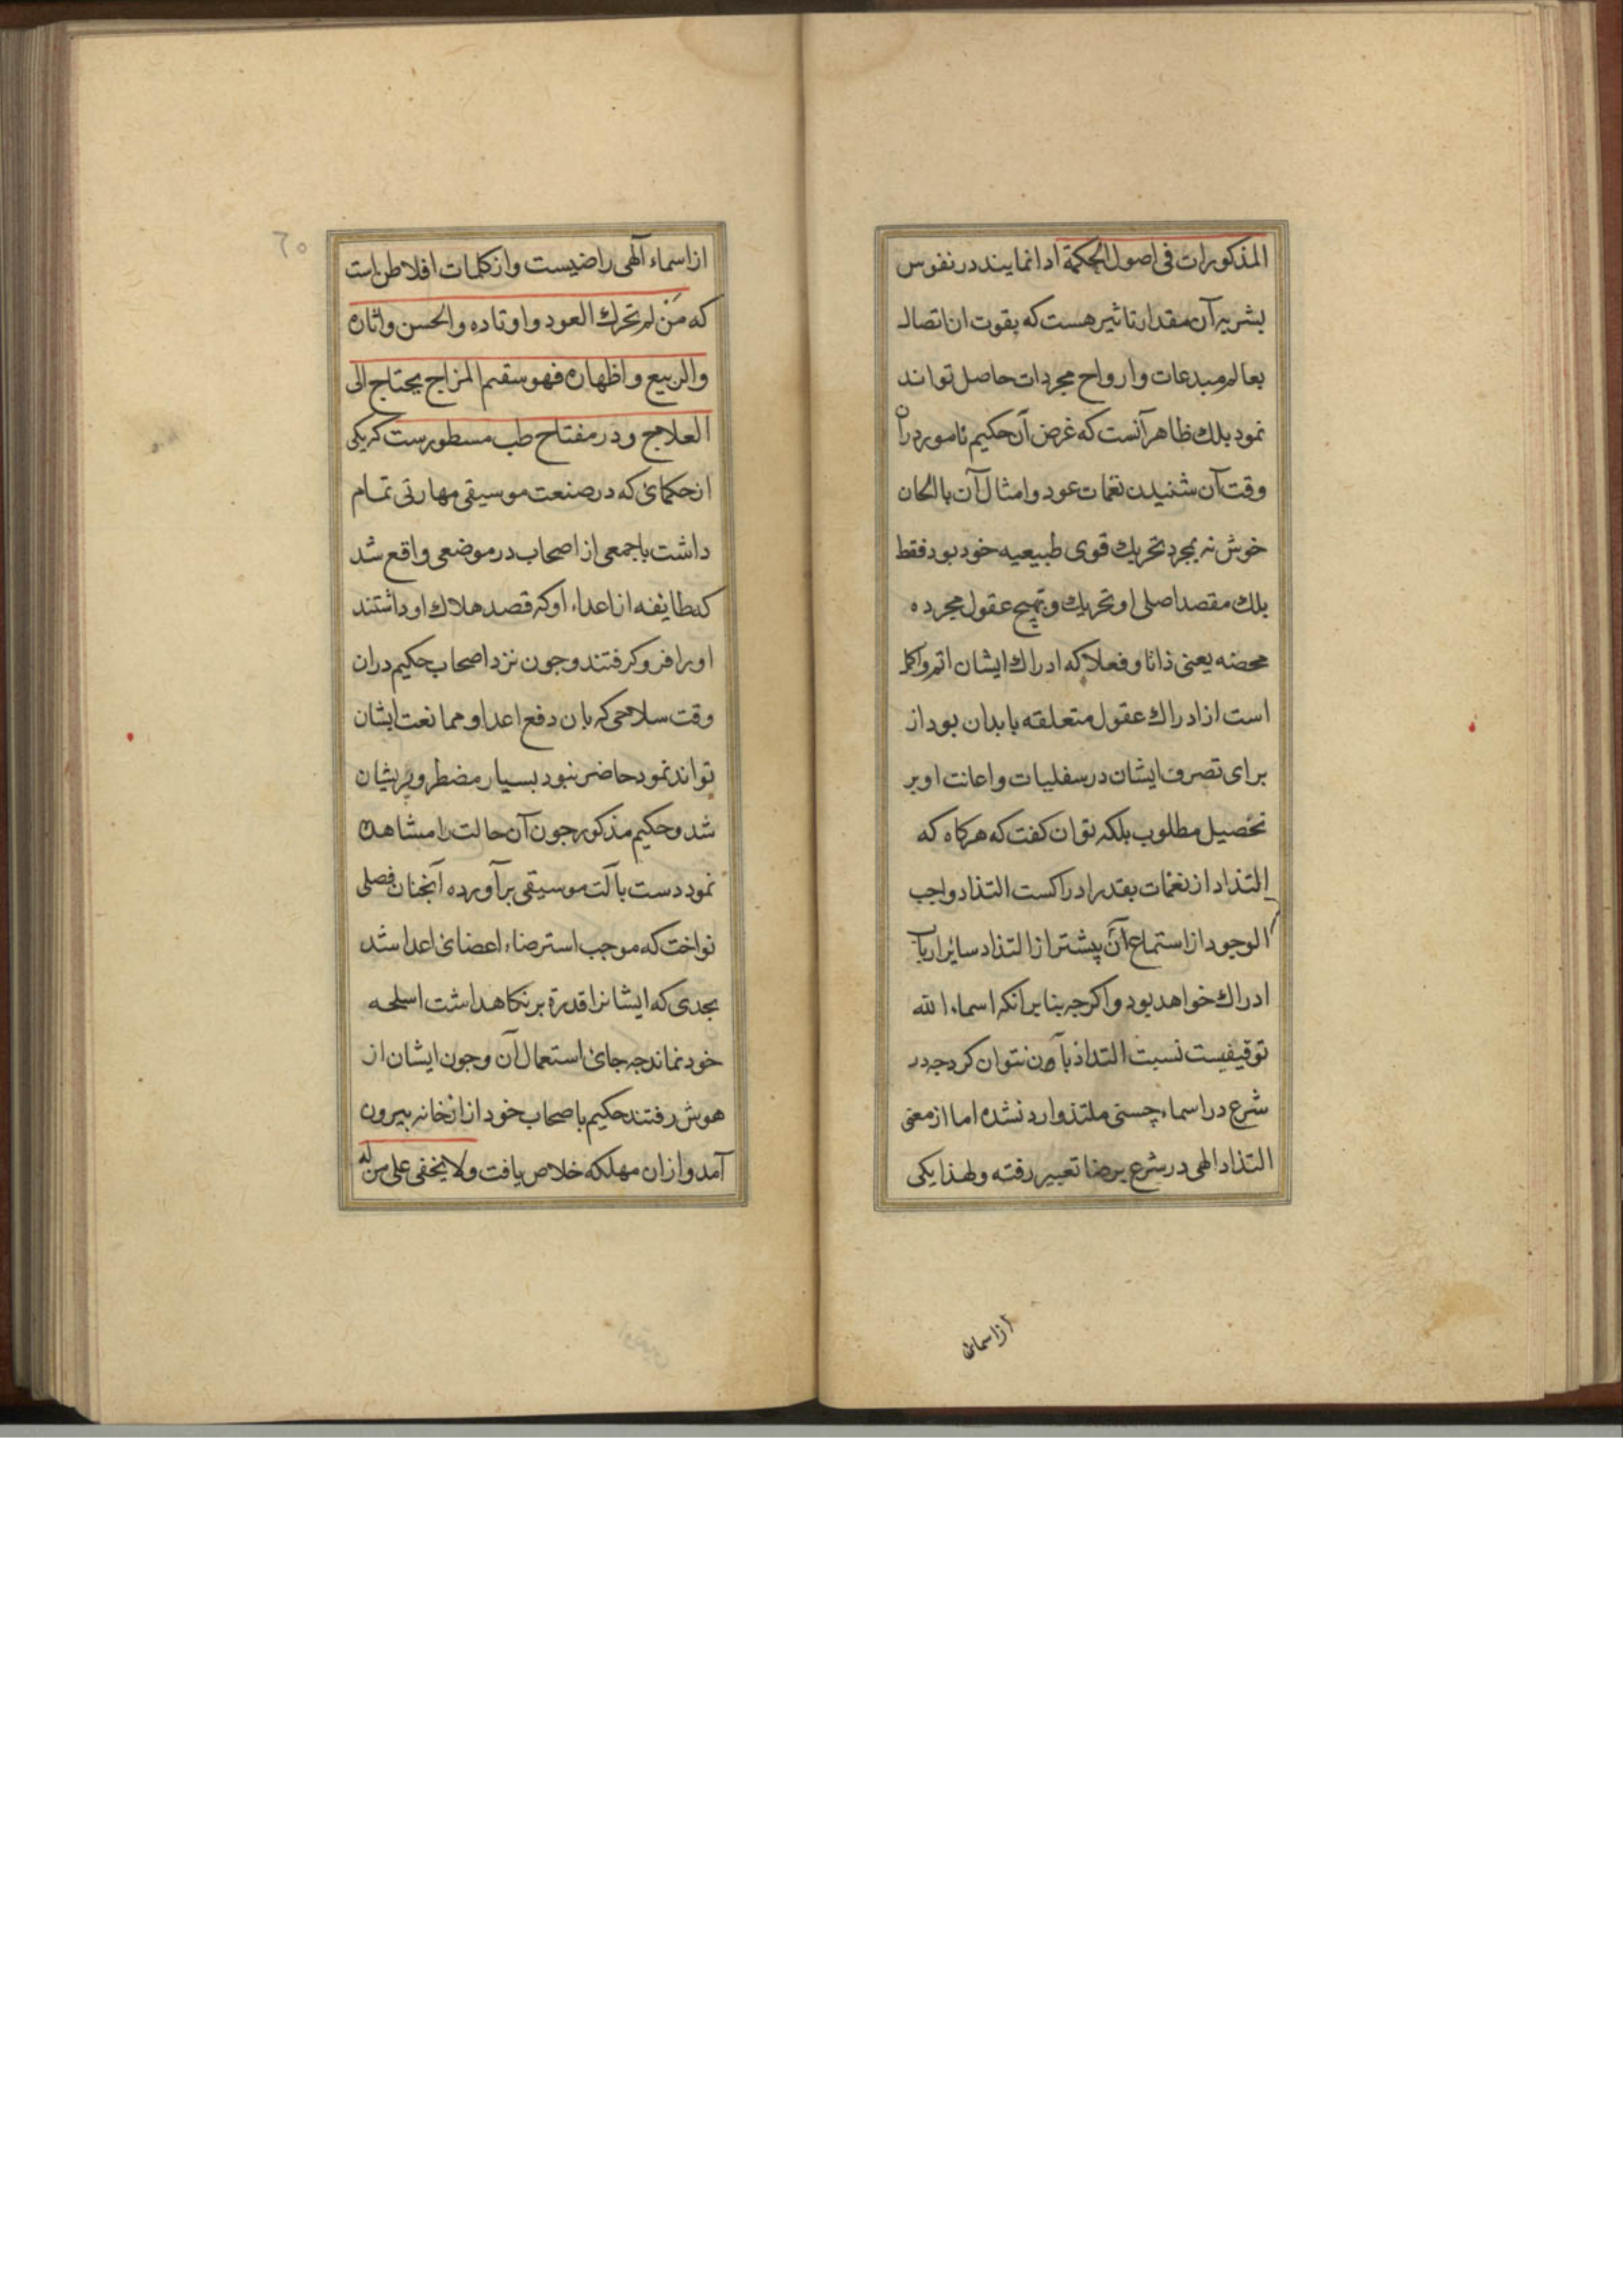 المذکورات فی اصول الحکمة ادا نمایند در نفوس
بشریه آن مقدار تاثیر هست که بقوت ان اتصال
بعالم مبدعات وارواح مجردات حاصل تواند
نمود بلك ظاهر آنست که غرض آن حکیم نامور دران
وقت آن شنیدن نغمات عود و امثال آن بالحان
خوش نه بمجرد تحریك قوی طبیعیه خود بود فقط
بلك مقصد اصلی او تحریك و تهیج عقول مجرده
محضه یعنی ذاتا و فعلا که ادراك ایشان اتم و اکمل
است از ادراك عقول متعلقه بابدان بود از
برای تصرف ایشان در سفلیات و اعانت او بر
تحصیل مطلوب بلکه توان کفت که هرکاه که
التذاد از نغمات بقدر ادراکست التذاد واجب
الوجود از استماع آن پیشتر از التذاد سائر ارباب
ادراك خواهد بود و اکرجه بنا برانکه اسماء الله
توقیفیست نسبت التداذ بآن نتوان کرد جه در
شرع در اسماء حسنی ملتذ وارد نشده اما از معنی
التذاد الهی در شرع برضا تعبیر رفته ولهذا یکی
از اسمائ
٦٠
از اسماء آلهی راضیست و از کلمات افلاطن است
که مَنْ لم تحرك العود و اوتاده والحسن واثاره
والربیع و اظهاره فهو سقیم المزاج یحتاج الی
العلاج و در مفتاح طب مسطورست که یکی
از حکمائ که در صنعت موسیقی مهارتی تمام
داشت با جمعی از اصحاب در موضعی واقع شد
که طایفه از اعداء او که قصد هلاك او داشتند
او را فرو کرفتند و جون نزد اصحاب حکیم دران
وقت سلاحی که بان دفع اعدا و ممانعت ایشان
تواند نمود حاضر نبود بسیار مضطر و پریشان
شد و حکیم مذکور جون آن حالت را مشاهده
نمود دست بآلت موسیقی برآورده آنجنان فصلی
نواخت که موجب استرضاء اعضائ اعدا شد
بحدی که ایشانرا قدرة بر نکاهداشت اسلحه
خود نماند جه جائ استعمال آن و جون ایشان از
هوش رفتند حکیم با صحاب خود از انخانه بیرون
آمد و ازان مهلکه خلاص یافت ولا یخفی علی من له